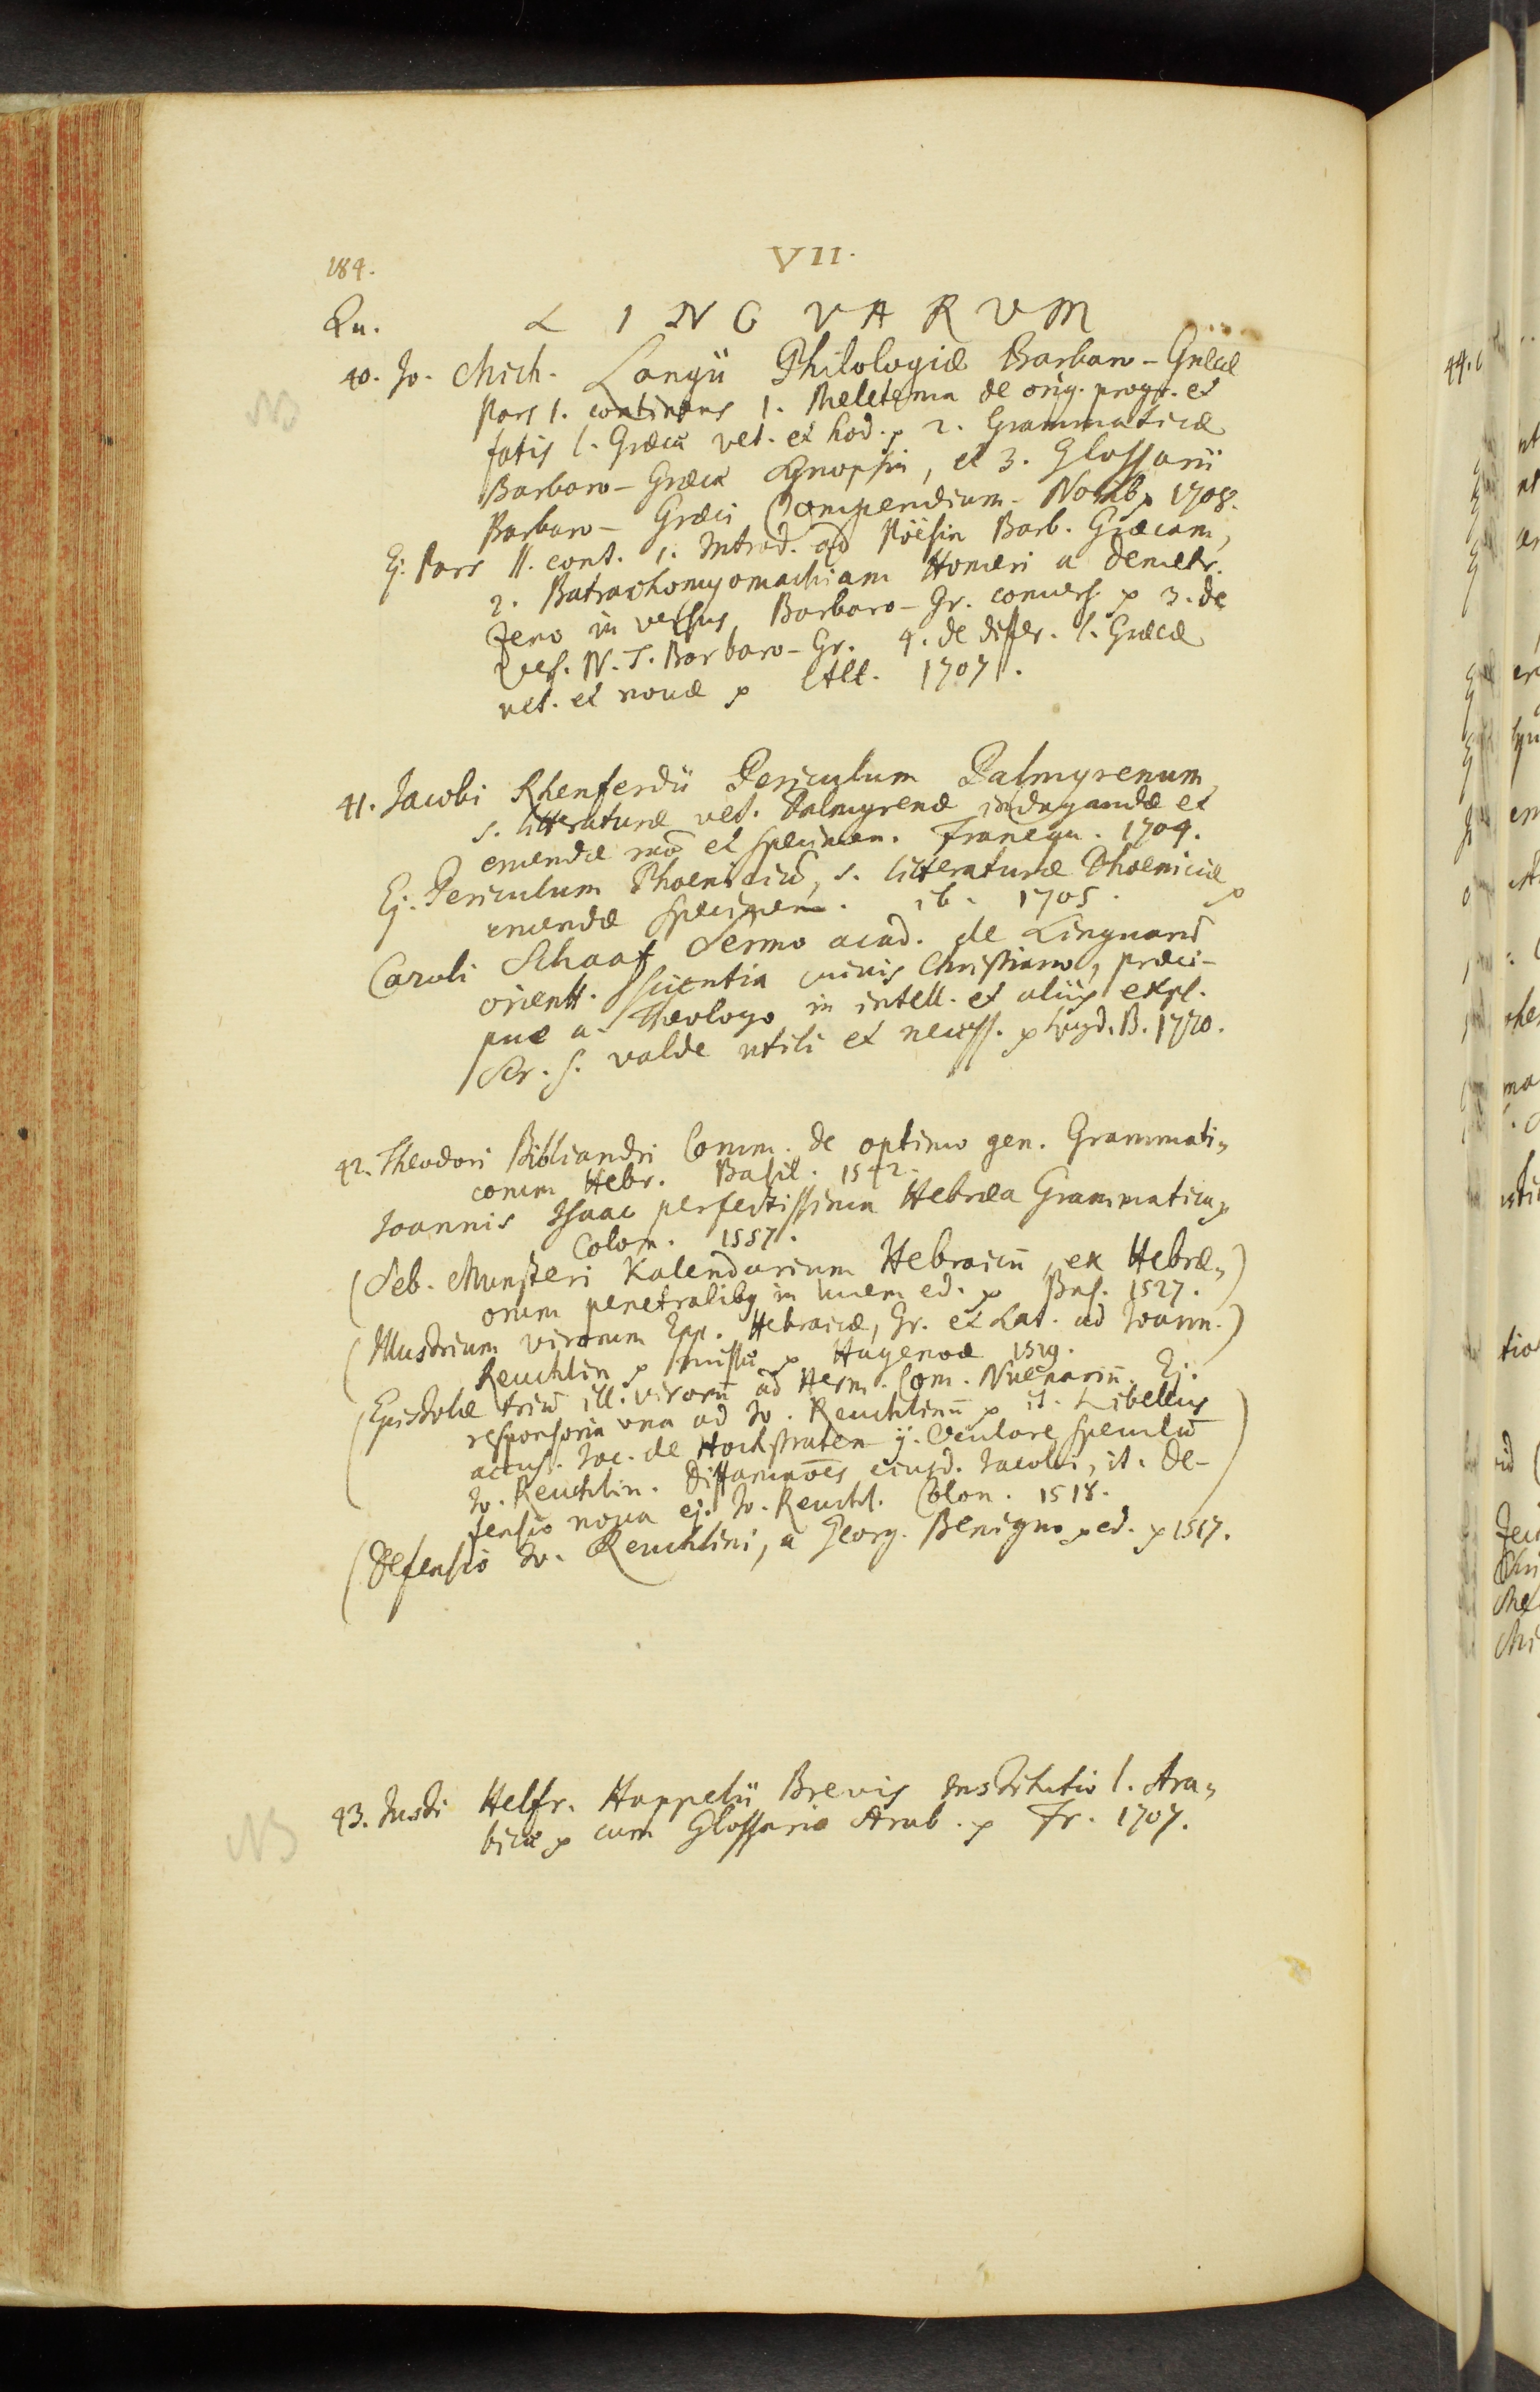 184.
VII.
Qu.
LINGVARVM
40. Jo. Mich. Langii Philologiæ Barbaro-Græcæ
Pars I. continens 1. Meletema de orig. progr. et
fatis l. Græcæ vet. et hod. 2. Grammaticæ
Barbaro-Græcæ Synopsin, et 3. Glossarii
Barbaro-Græci Compendium. Norib. 1708.
Ej. Pars II. cont. 1. Introd. ad Poësin Barb. Græcam,
2. Batrachomyomachiam Homeri a Demetr.
Zeno in versus Barbaro-Gr. convers. 3. de
Vers. N. T. Barbaro-Gr. 4. de differ. l. Græcæ
vet. et novæ Alt. 1707.
41. Jacobi Rhenferdii Periculum Palmyrenum
s. litteraturæ vet. Palmyrenæ indagandæ et
eruendæ mõ et specimen. Franequ. 1704.
Ej. Periculum Phoeniciũ, s. litteraturæ Phoeniciæ
eruendæ specimen. ib. 1705.
Caroli Schaaf Sermo acad. de Linguarũ
orientt. scientia cuivis Christiano, præci-
pue a Theologo in intell. et aliis expl.
Scr. S. valde utili et necess. Lugd. B. 1710.
42. Theodori Bibliandri Comm. de optimo gen. Grammati„
corum Hebr. Basil. 1542.
Joannis Isaac perfectissima Hebræa Grammatica
Colon. 1557.
(Seb. Munsteri Kalendarium Hebraicũ, ex Hebræ„)
orum penetralibq in lucem ed. Bas. 1527.
(Illustrium virorum Epp. Hebraicæ, Gr. et Lat. ad Joann.)
Reuchlin missæ Hagenoæ 1519.
(Epistolæ triũ ill. virorũ ad Herm. Com. Nuenariũ. Ej.
responsoria una ad Jo. Reuchlinũ it. Libellus
accus. Jac. de Hochstraten ÿ. Oculare Speculũ
Jo. Reuchlin. Diffamaões ejusd. Jacobi, it. De-
fensio nova ej. Jo. Reuchl. Colon. 1518.)
(Defensio Jo. Reuchlini, a Georg. Benigno ed. 1517.
43. Justi Helfr. Happelii Brevis Institutio l. Ara„
bicæ cum Glossario Arab. Fr. 1707.
NB
NB
44.